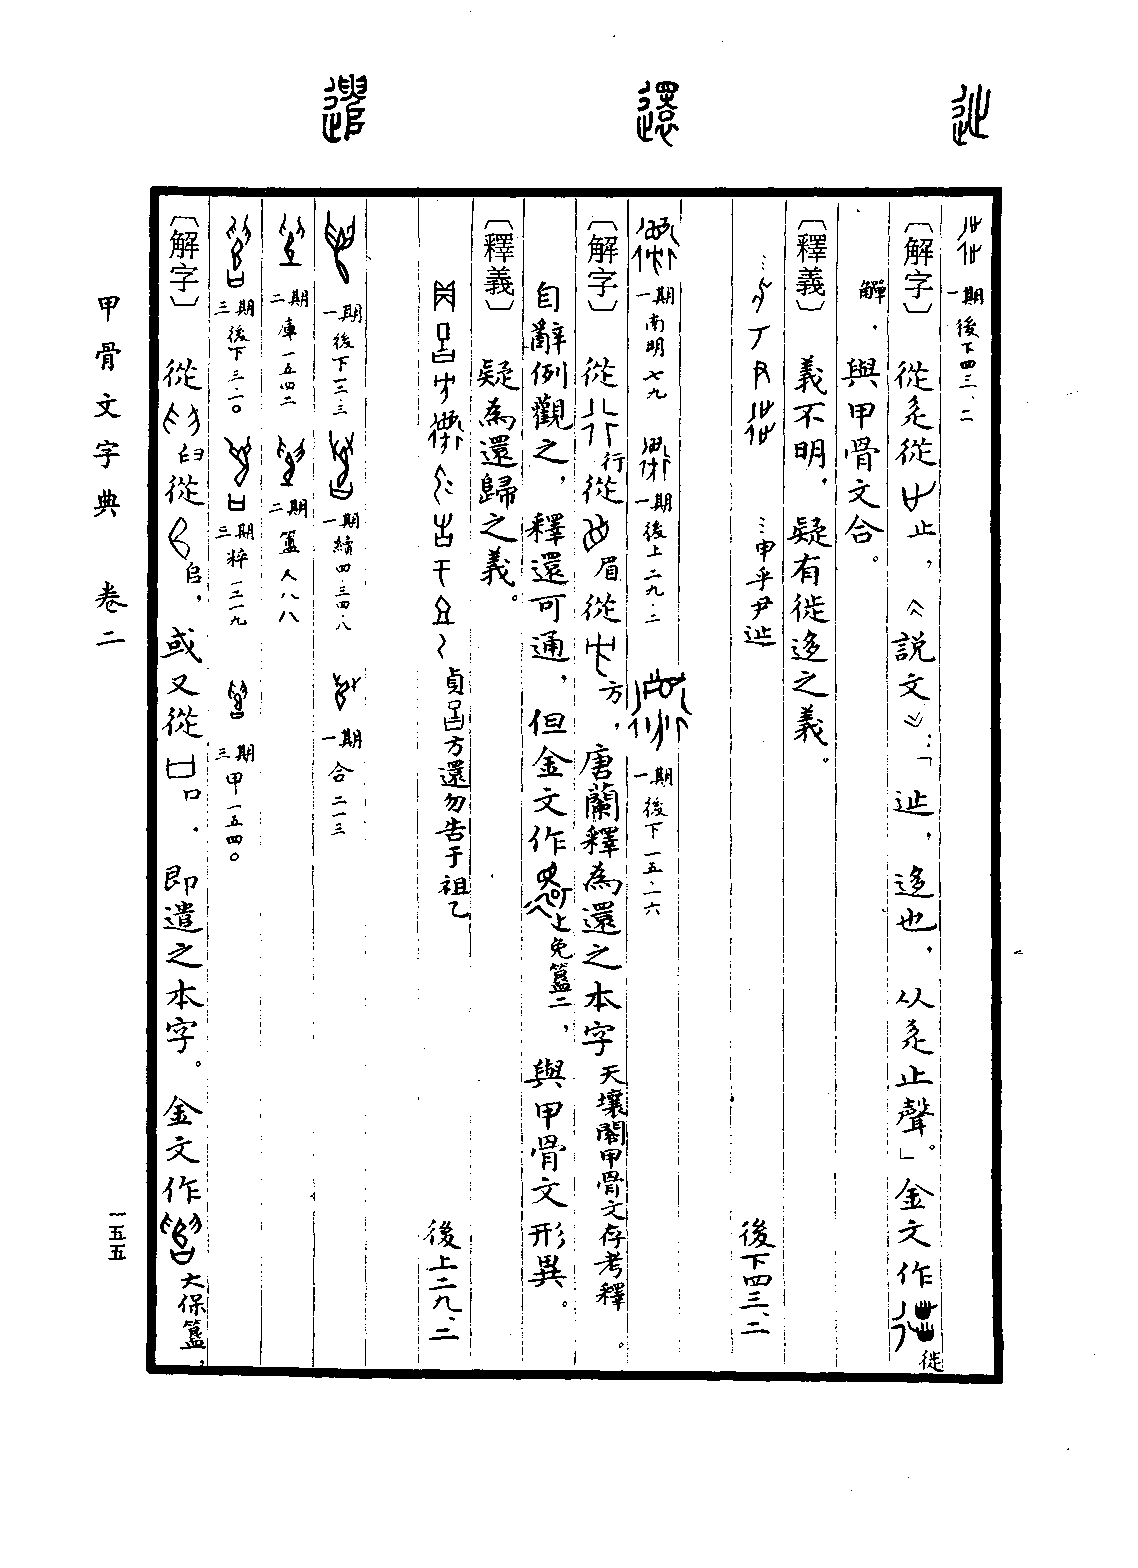 䢌
還
遣
一期 後下四三.二
〔解字〕從辵從止，《說文》：「䢌，迻也，从辵止聲。」金文作徙
觶，與甲骨文合。
〔釋義〕義不明，疑有徙迻之義。
…申乎尹䢌 後下四三.二
一期 南明七九 一期 後上二九.二 一期 後下一五.一六
〔解字〕從行從眉從方，唐蘭釋為還之本字天壤閣甲骨文存考釋。
自辭例觀之，釋還可通，但金文作免簋二，與甲骨文形異。
〔釋義〕疑為還歸之義。
貞𠱠方還勿告于祖乙 後上二九.二
一期 後下一二.三 一期 續四.三四.八 一期 合二一三
二期 庫一五四二 二期 簠人八八
三期 後下三.一〇 三期 粹一二一九 三期 甲一五四〇
〔解字〕從𦥑從𠂤，或又從口，即遣之本字。金文作大保簋，
甲骨文字典 卷二
一五五